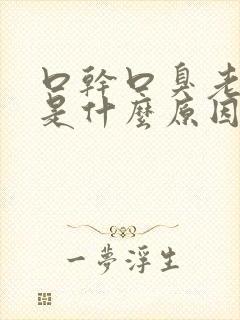 口幹口臭老
是什麼原因
一夢浮生